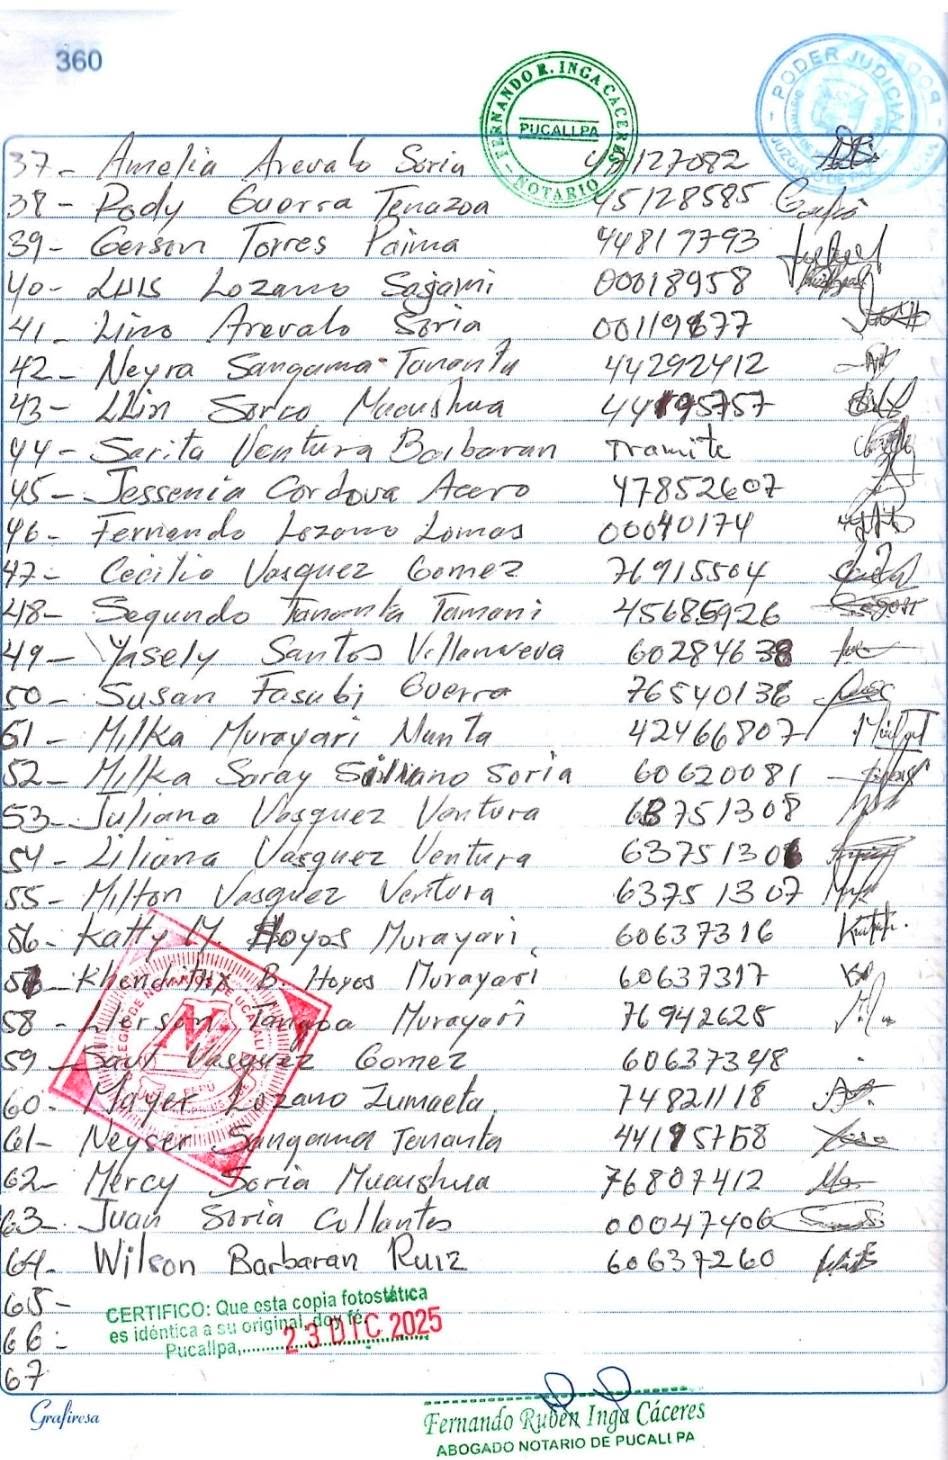 360
FERNANDO R. INGA CACERES
PUCALLPA
NOTARIO
PODER JUDICIAL
37- Amelia Arevalo Soria 47127082
38- Rody Guerra Tenazoa 45128585
39- Gerson Torres Paima 44817793
40- Luis Lozano Sajami 00018958
41- Lino Arevalo Soria 00119877
42- Neyra Sangama Tananta 44292412
43- LLin Soria Macushua 44195757
44- Sarita Ventura Barbaran Tramite
45- Jessenia Cordova Acero 47852607
46- Fernando Lozano Lomas 00040174
47- Cecilio Vasquez Gomez 76915504
48- Segundo Tananta Tamani 45685926
49- Yasely Santos Villanueva 60284638
50- Susan Fasabi Guerra 76540136
51- Milka Murayari Nunta 42466807
52- Milka Saray Silvano Soria 60620081
53- Juliana Vasquez Ventura 63751308
54- Liliana Vasquez Ventura 63751306
55- Milton Vasquez Ventura 63751307
56- Katty M. Hoyos Murayari 60637316
57- B. Hoyos Murayari 60637317
58- Murayari 76942625
59- Saul Vasquez Gomez 60637348
60- Mayer Lozano Zumaeta 74821118
61- Neyser Sangama Tananta 44195758
62- Mercy Soria Macushua 76807412
63- Juan Soria Collantes 00047406
64- Wilson Barbaran Ruiz 60637260
65-
66-
67
CERTIFICO: Que esta copia fotostática
es idéntica a su original, doy fé.
Pucallpa, 23 DIC 2025
Grafiresa
Fernando Rubén Inga Cáceres
ABOGADO NOTARIO DE PUCALLPA